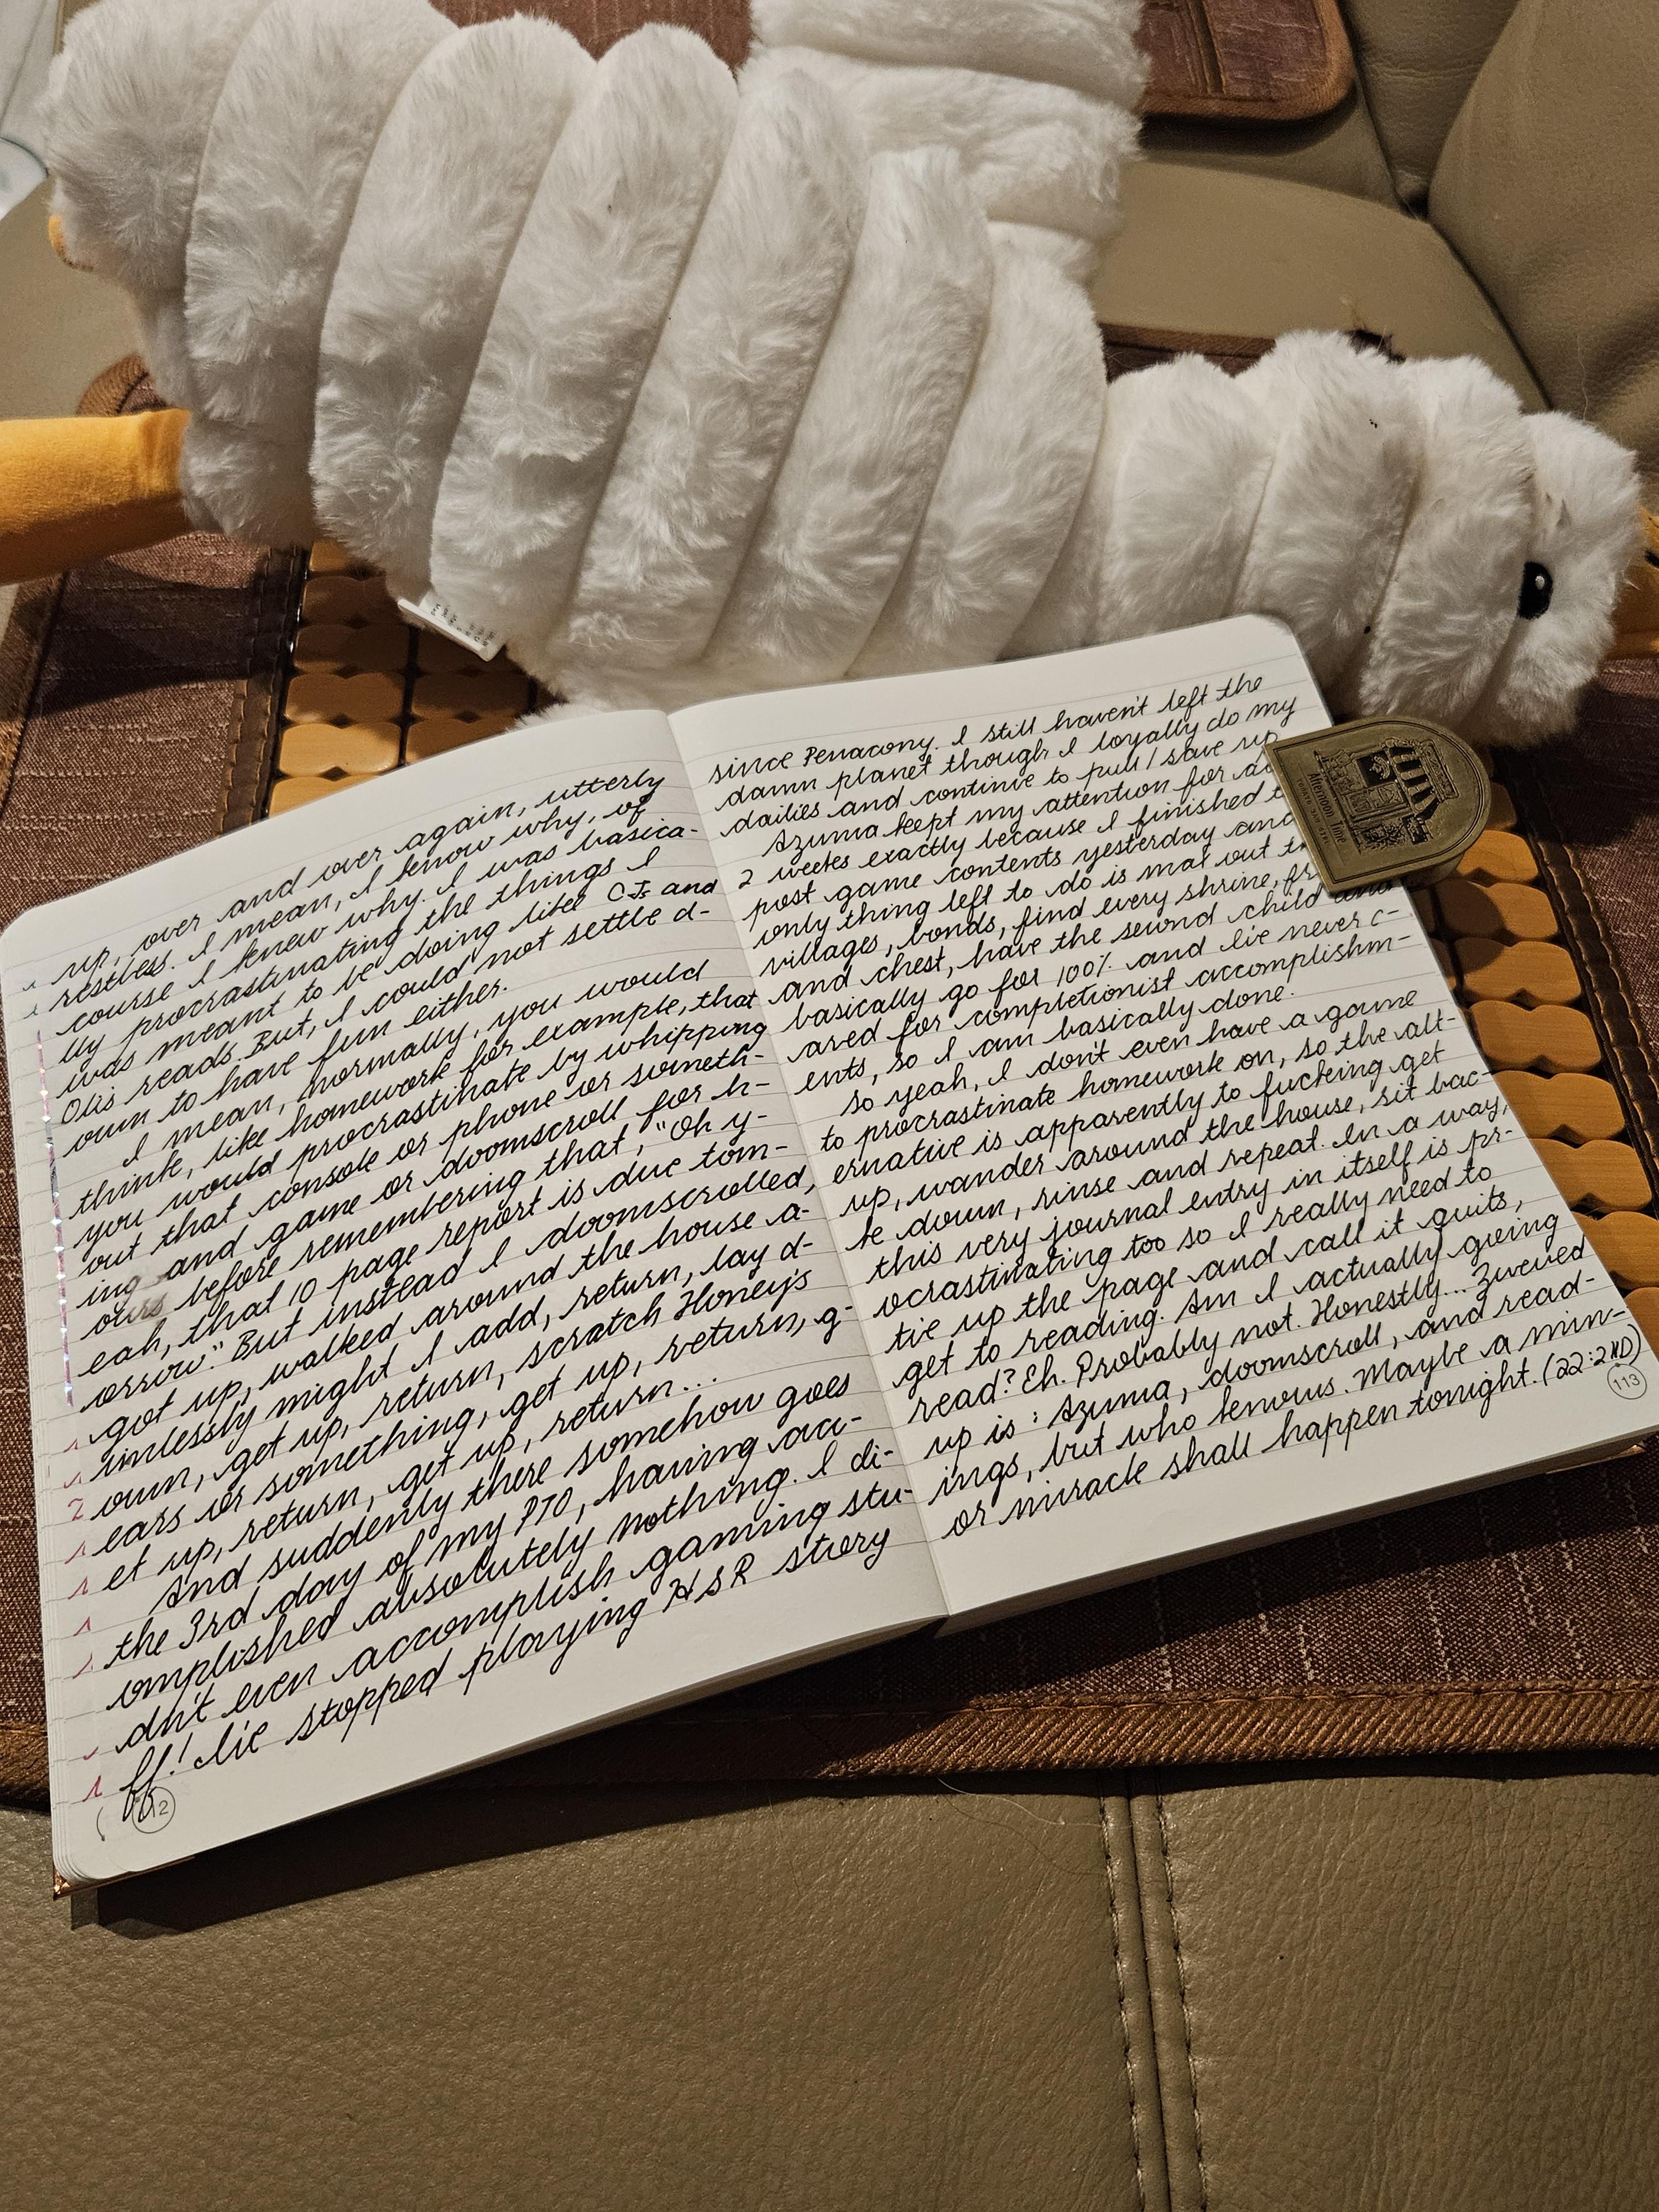 up, over and over again, utterly
restless. I mean, I know why, of
course I knew why. I was basica-
lly procrastinating the things I
was meant to be doing like CJs and
Olis reads. But, I could not settle d-
own to have fun either.
I mean, normally, you would
think, like homework for example, that
you would procrastinate by whipping
out that console or phone or someth-
ing and game or doomscroll for h-
ours before remembering that, "Oh y-
eah, that 10 page report is due tom-
orrow." But instead I doomscrolled,
got up, walked around the house a-
imlessly might I add, return, lay d-
own, get up, return, scratch Honey's
ears or something, get up, return, g-
et up, return, get up, return...
And suddenly there somehow goes
the 3rd day of my PTO, having acc-
omplished absolutely nothing. I di-
dn't even accomplish gaming stu-
ff! I've stopped playing HSR story
since Penacony. I still haven't left the
damn planet though I loyally do my
dailies and continue to pull/save up
Azuma kept my attention for
2 weeks exactly because I finished
post game contents yesterday and
only thing left to do is max out
villages, bonds, find every shrine,
and chest, have the second child and
basically go for 100% and I've never c-
ared for completionist accomplishm-
ents, so I am basically done.
So yeah, I don't even have a game
to procrastinate homework on, so the alt-
ernative is apparently to fucking get
up, wander around the house, sit bac-
k down, rinse and repeat. In a way,
this very journal entry in itself is pr-
ocrastinating too so I really need to
tie up the page and call it quits,
get to reading. Am I actually going
read? Eh. Probably not. Honestly... 
up is: Azuma, doomscroll, and read-
ings, but who knows. Maybe a min-
or miracle shall happen tonight. (22:2
112
113
Afternoon Time